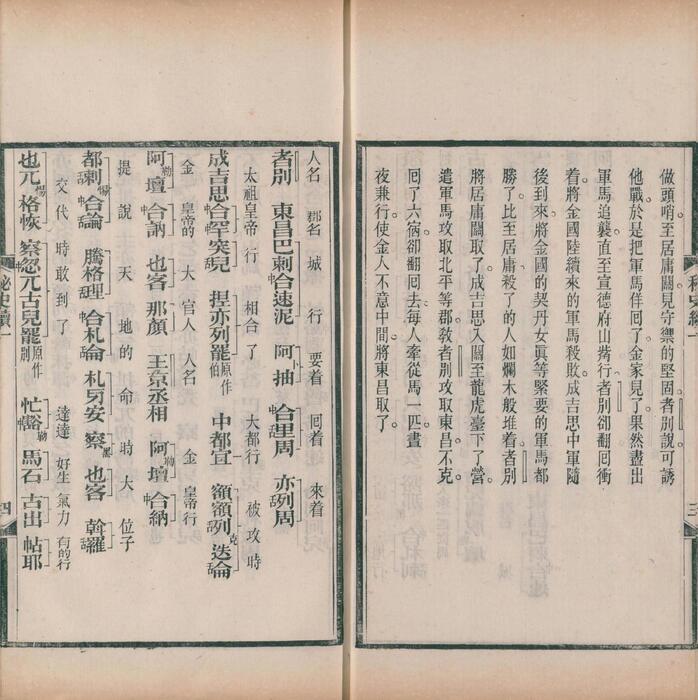 做頭哨。至居庸關。見守禦的堅固。者別說。可誘
他戰。於是把軍馬佯回了。金家見了。果然盡出
軍馬追襲。直至宣德府山觜行。者別卻翻回衝
着。將金國陸續來的軍馬殺敗。成吉思中軍隨
後到來。將金國的契丹女眞等緊要的軍馬都
勝了。比至居庸。殺了的人如爛木般堆着。者別
將居庸關取了。成吉思入關至龍虎臺下了營。
遣軍馬攻取北平等郡。敎者別攻取東昌。不克。
回了六宿。卻翻回去。每人牽從馬一匹。晝
夜兼行。使金人不意中間。將東昌取了。
三
人名 郡名 城 行 要着 囘着 來着
者別 東昌巴剌合速泥 阿卜抽 中合里周 亦列周
太祖皇帝 行 相合了 大都行 被攻時
成吉思中合罕突兒 揑亦列罷原作伯 中都宣 額額列克迭論
金 皇帝的 大 官人 人名 金 皇帝行
阿勒壇 中合訥 也客 那顏 王京丞相 阿勒壇 中合納
提說 天 地的 命 時 大 位子
都剌惕 中合論 騰格理 中合札侖 札牙安 察黑 也客 斡羅
交代 時 敢到了 達達 好生 氣力 有的行
也兀惕 格恢 察中忽兀古兒罷原作別 忙中豁勒 馬石 古出 帖耶
祕史續一
四